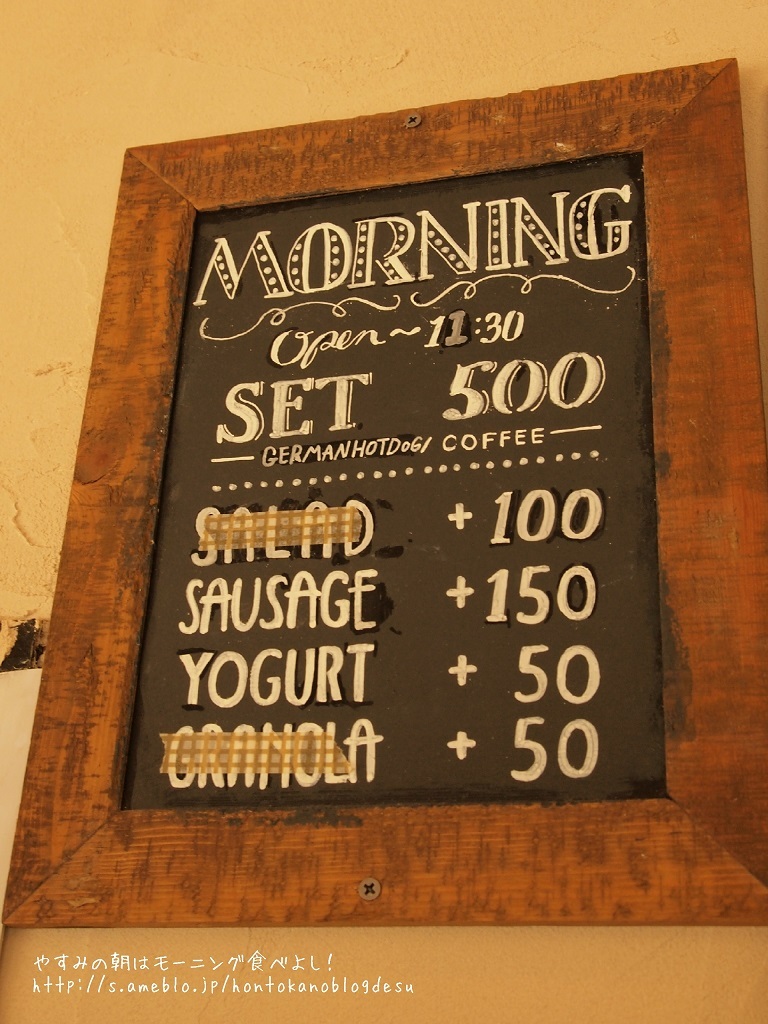 MORNING
Open~11:30
SET 500
GERMANHOTDOG/ COFFEE
SALAD +100
SAUSAGE +150
YOGURT + 50
GRANOLA + 50
やすみの朝はモーニング食べよし!
http://s.ameblo.jp/hontokanoblogdesu